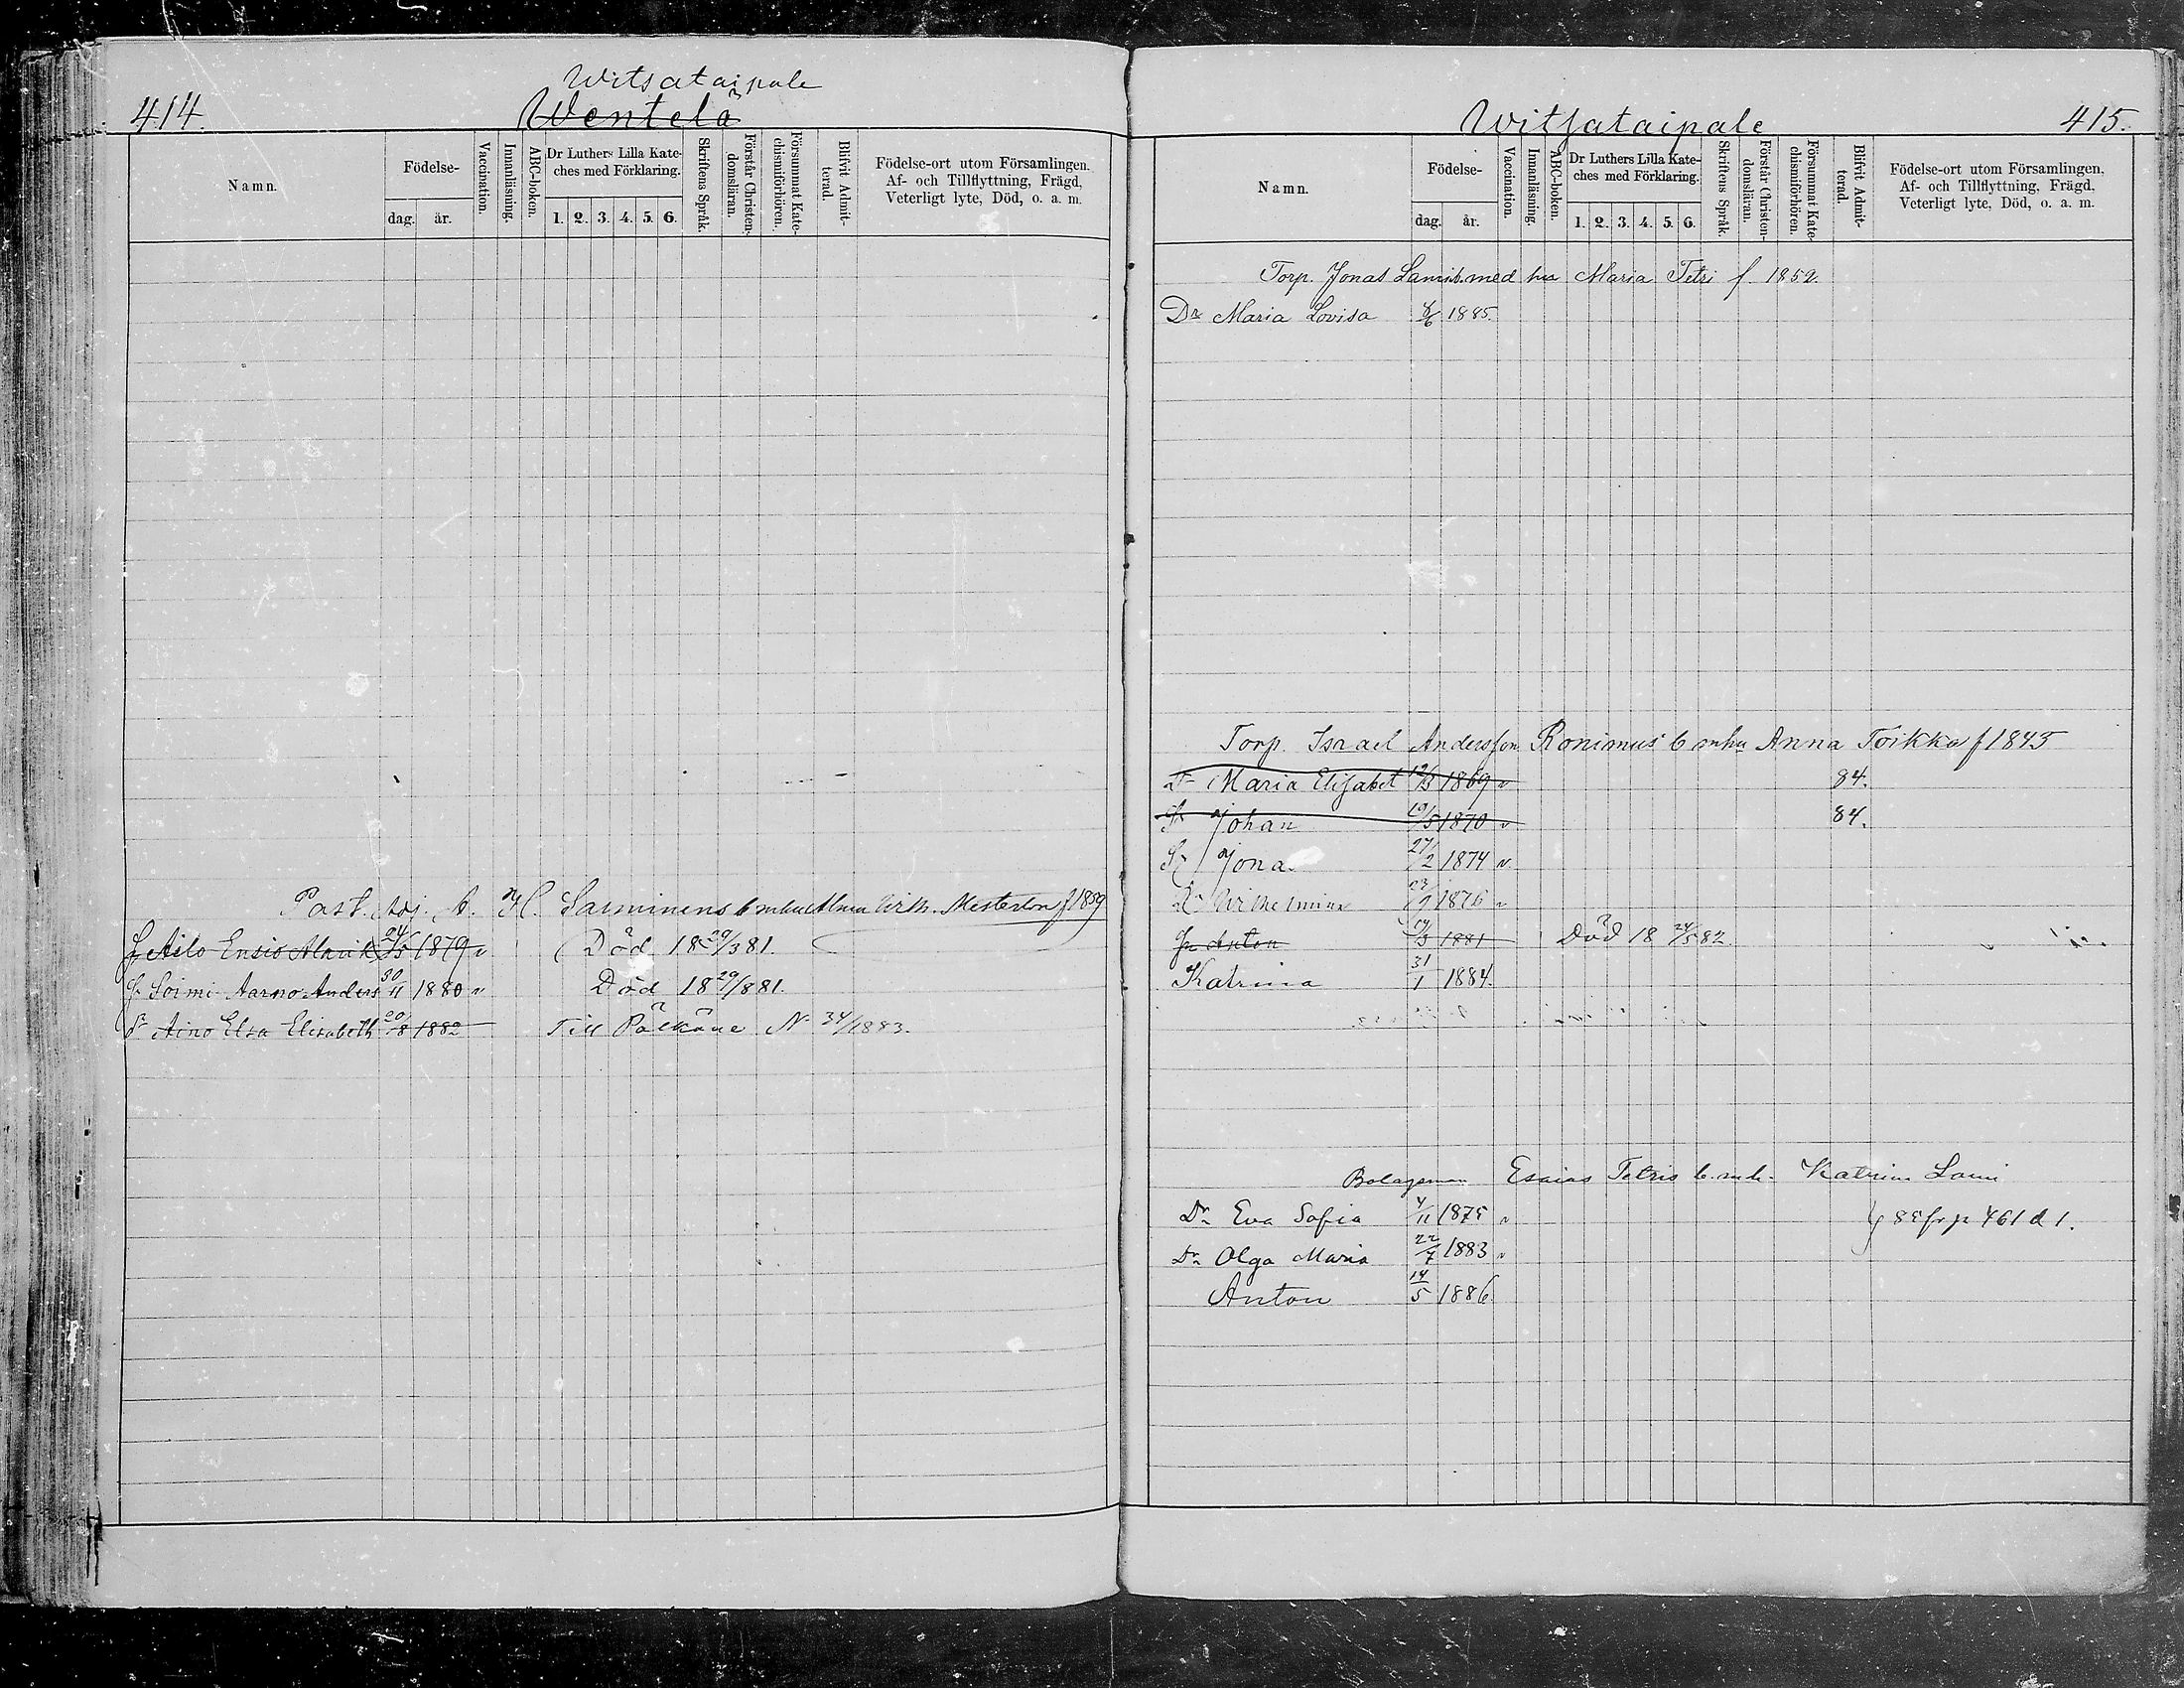 Witsataipale
414. Wentelä
Namn.
Födelse-
dag. år.
Vaccination.
Innanläsning.
ABC-boken.
Dr Luthers Lilla Kate-
ches med Förklaring.
1. 2. 3. 4. 5. 6.
Skriftens Språk.
Förstår Christen-
domsläran.
Försummat Kate-
chismiförhören.
Blifvit Admit-
terad.
Födelse-ort utom Församlingen.
Af- och Tillflyttning, Frägd,
Veterligt lyte, Död, o. a. m.
Past. Adj. A. H. Sarminens b mhu Alma Wilh. Mesterton f 1859
S. Ailo Ensio Alarik 24/5 1879 v Död 18 29/3 81.
S. Soimi Aarno Anders 30/11 1880 v Död 18 29/8 81.
Dr Aino Elsa Elisabeth 20/8 1882 Till Pälkäne N 34/1883.
Witsataipale 415.
Namn.
Födelse-
dag. år.
Vaccination.
Innanläsning.
ABC-boken.
Dr Luthers Lilla Kate-
ches med Förklaring.
1. 2. 3. 4. 5. 6.
Skriftens Språk.
Förstår Christen-
domsläran.
Försummat Kate-
chismiförhören.
Blifvit Admit-
terad.
Födelse-ort utom Församlingen.
Af- och Tillflyttning, Frägd,
Veterligt lyte, Död, o. a. m.
Torp. Jonas med hu Maria Tetri f. 1852.
Dr Maria Lovisa 1885.
Torp. Israel Andersson Ronimus' b mhu Anna Toikka f 1845
Dr Maria Elisabet 1869 v 84.
Sn Johan 19/5 1870 v 84.
Sn Jonas 27/2 1874 v
Dr Wilhelmina 23/9 1876 v
Sn Anton 1881 Död 18 24/5 82.
Katrina 31/1 1884.
Bolagsman Esaias Tetris b. mh. Katrina Lami
Dr Eva Sofia 4/11 1875 v } 85 fr p 461 d 1.
Dr Olga Maria 22/7 1883 v
Anton 14/5 1886.